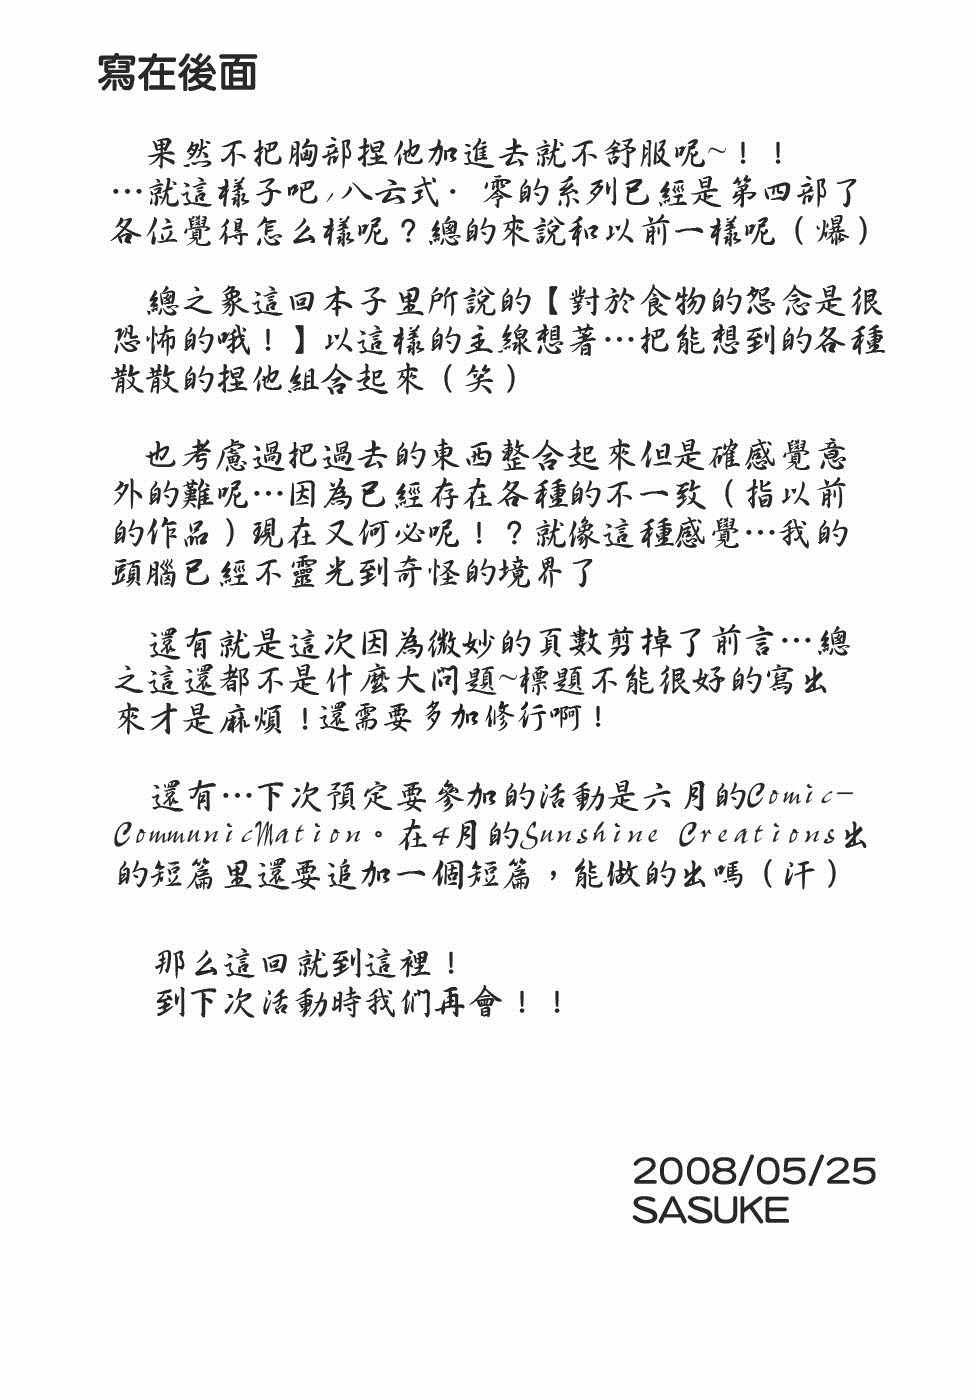 寫在後面
果然不把胸部捏他加進去就不舒服呢~！！
…就這樣子吧,八云式· 零的系列已經是第四部了
各位覺得怎么樣呢？總的來說和以前一樣呢（爆）
總之象這回本子里所說的【對於食物的怨念是很
恐怖的哦！】以這樣的主線想著…把能想到的各種
散散的捏他組合起來（笑）
也考慮過把過去的東西整合起來但是確感覺意
外的難呢…因為已經存在各種的不一致（指以前
的作品）現在又何必呢！？就像這種感覺…我的
頭腦已經不靈光到奇怪的境界了
還有就是這次因為微妙的頁數剪掉了前言…總
之這還都不是什麼大問題~標題不能很好的寫出
來才是麻煩！還需要多加修行啊！
還有…下次預定要參加的活動是六月的Comic-
CommunicMation。在4月的Sunshine Creations出
的短篇里還要追加一個短篇，能做的出嗎（汗）
那么這回就到這裡！
到下次活動時我們再會！！
2008/05/25
SASUKE